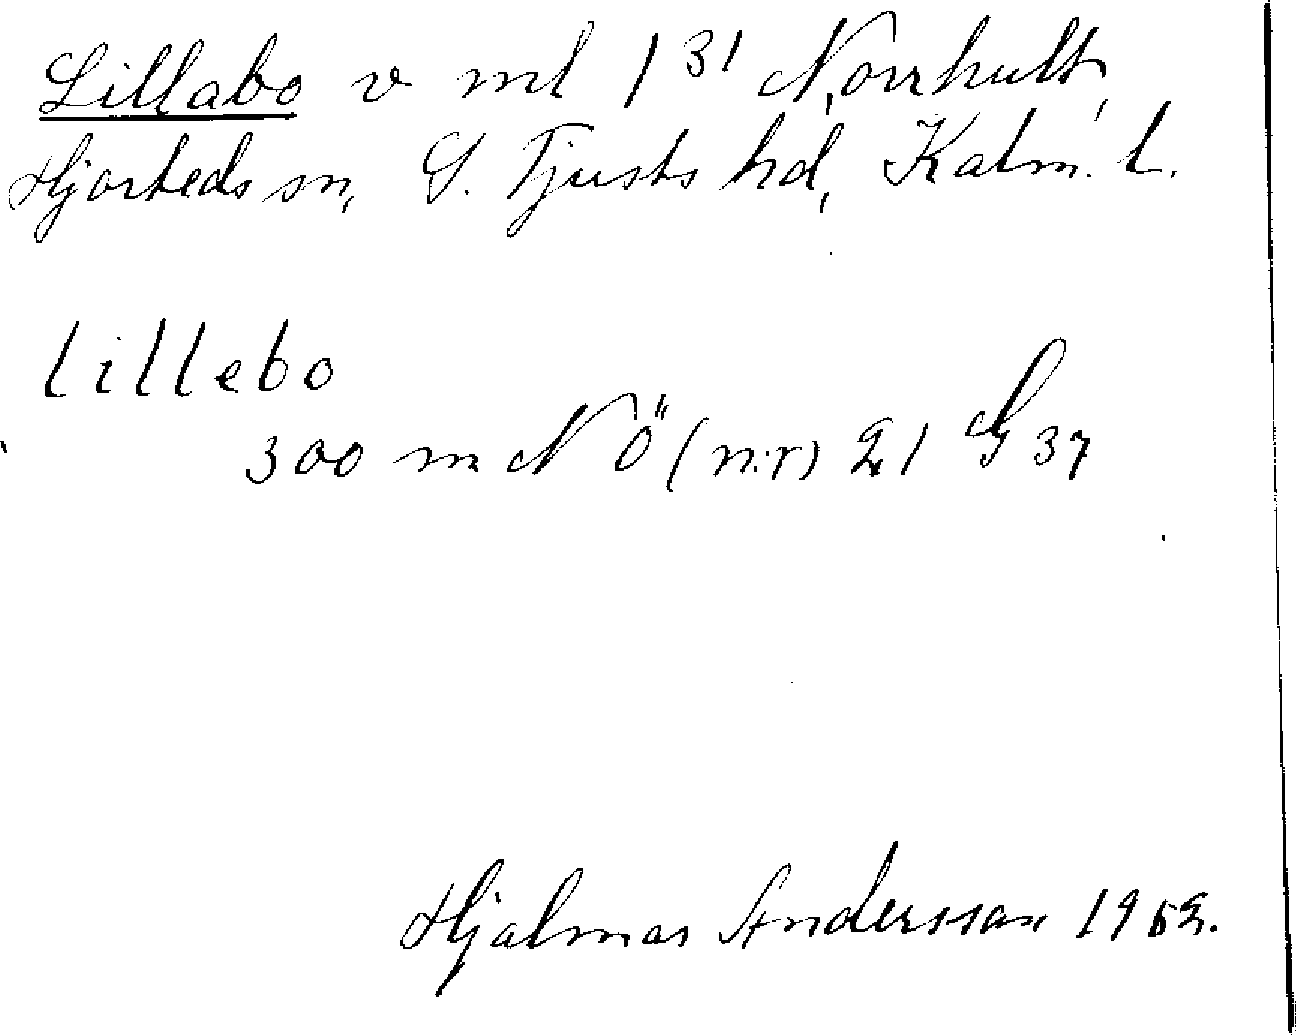 Lillabo v ml 1³¹ Norrhult,
Hjorteds sn, S. Tjusts hd, Kalm. l.
lillebo
300 m NÖ (n:r) 21 S 37
Hjalmar Andersson 1952.